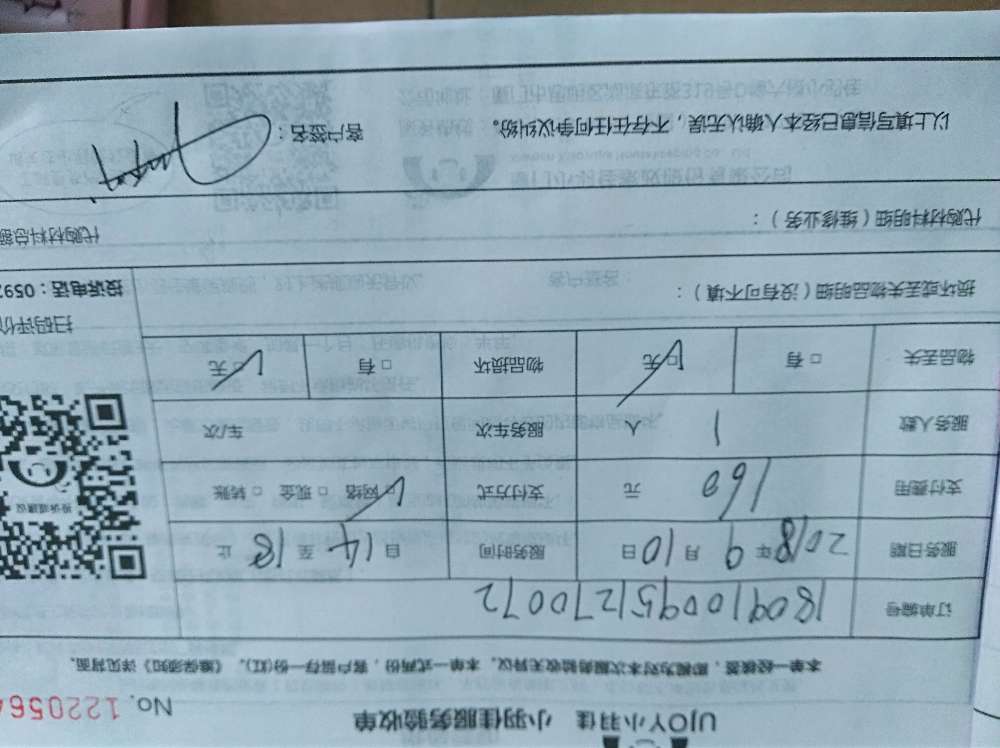 UJOY小羽佳 小羽佳服务验收单
No. 122056
本单一经接签,即视为对本次服务验收无异议。本单一式两份,客户留存一份(红)。《雇保须知》详见背面。
订单编号 1809100951270072
服务日期 2018年9月10日 服务时间 自14至18止
支付费用 160 元 支付方式 网络 □现金 □转账
服务人数 1 人 服务车次 车/次
物品丢失 □有 □无 物品损坏 □有 □无
投诉或建议
扫码评价
损坏或丢失物品明细(没有可不填):
投诉电话:059
代购材料明细(维修业务):
代购材料总额
以上填写信息已经本人确认无误,不存在任何争议纠纷。 客户签名: